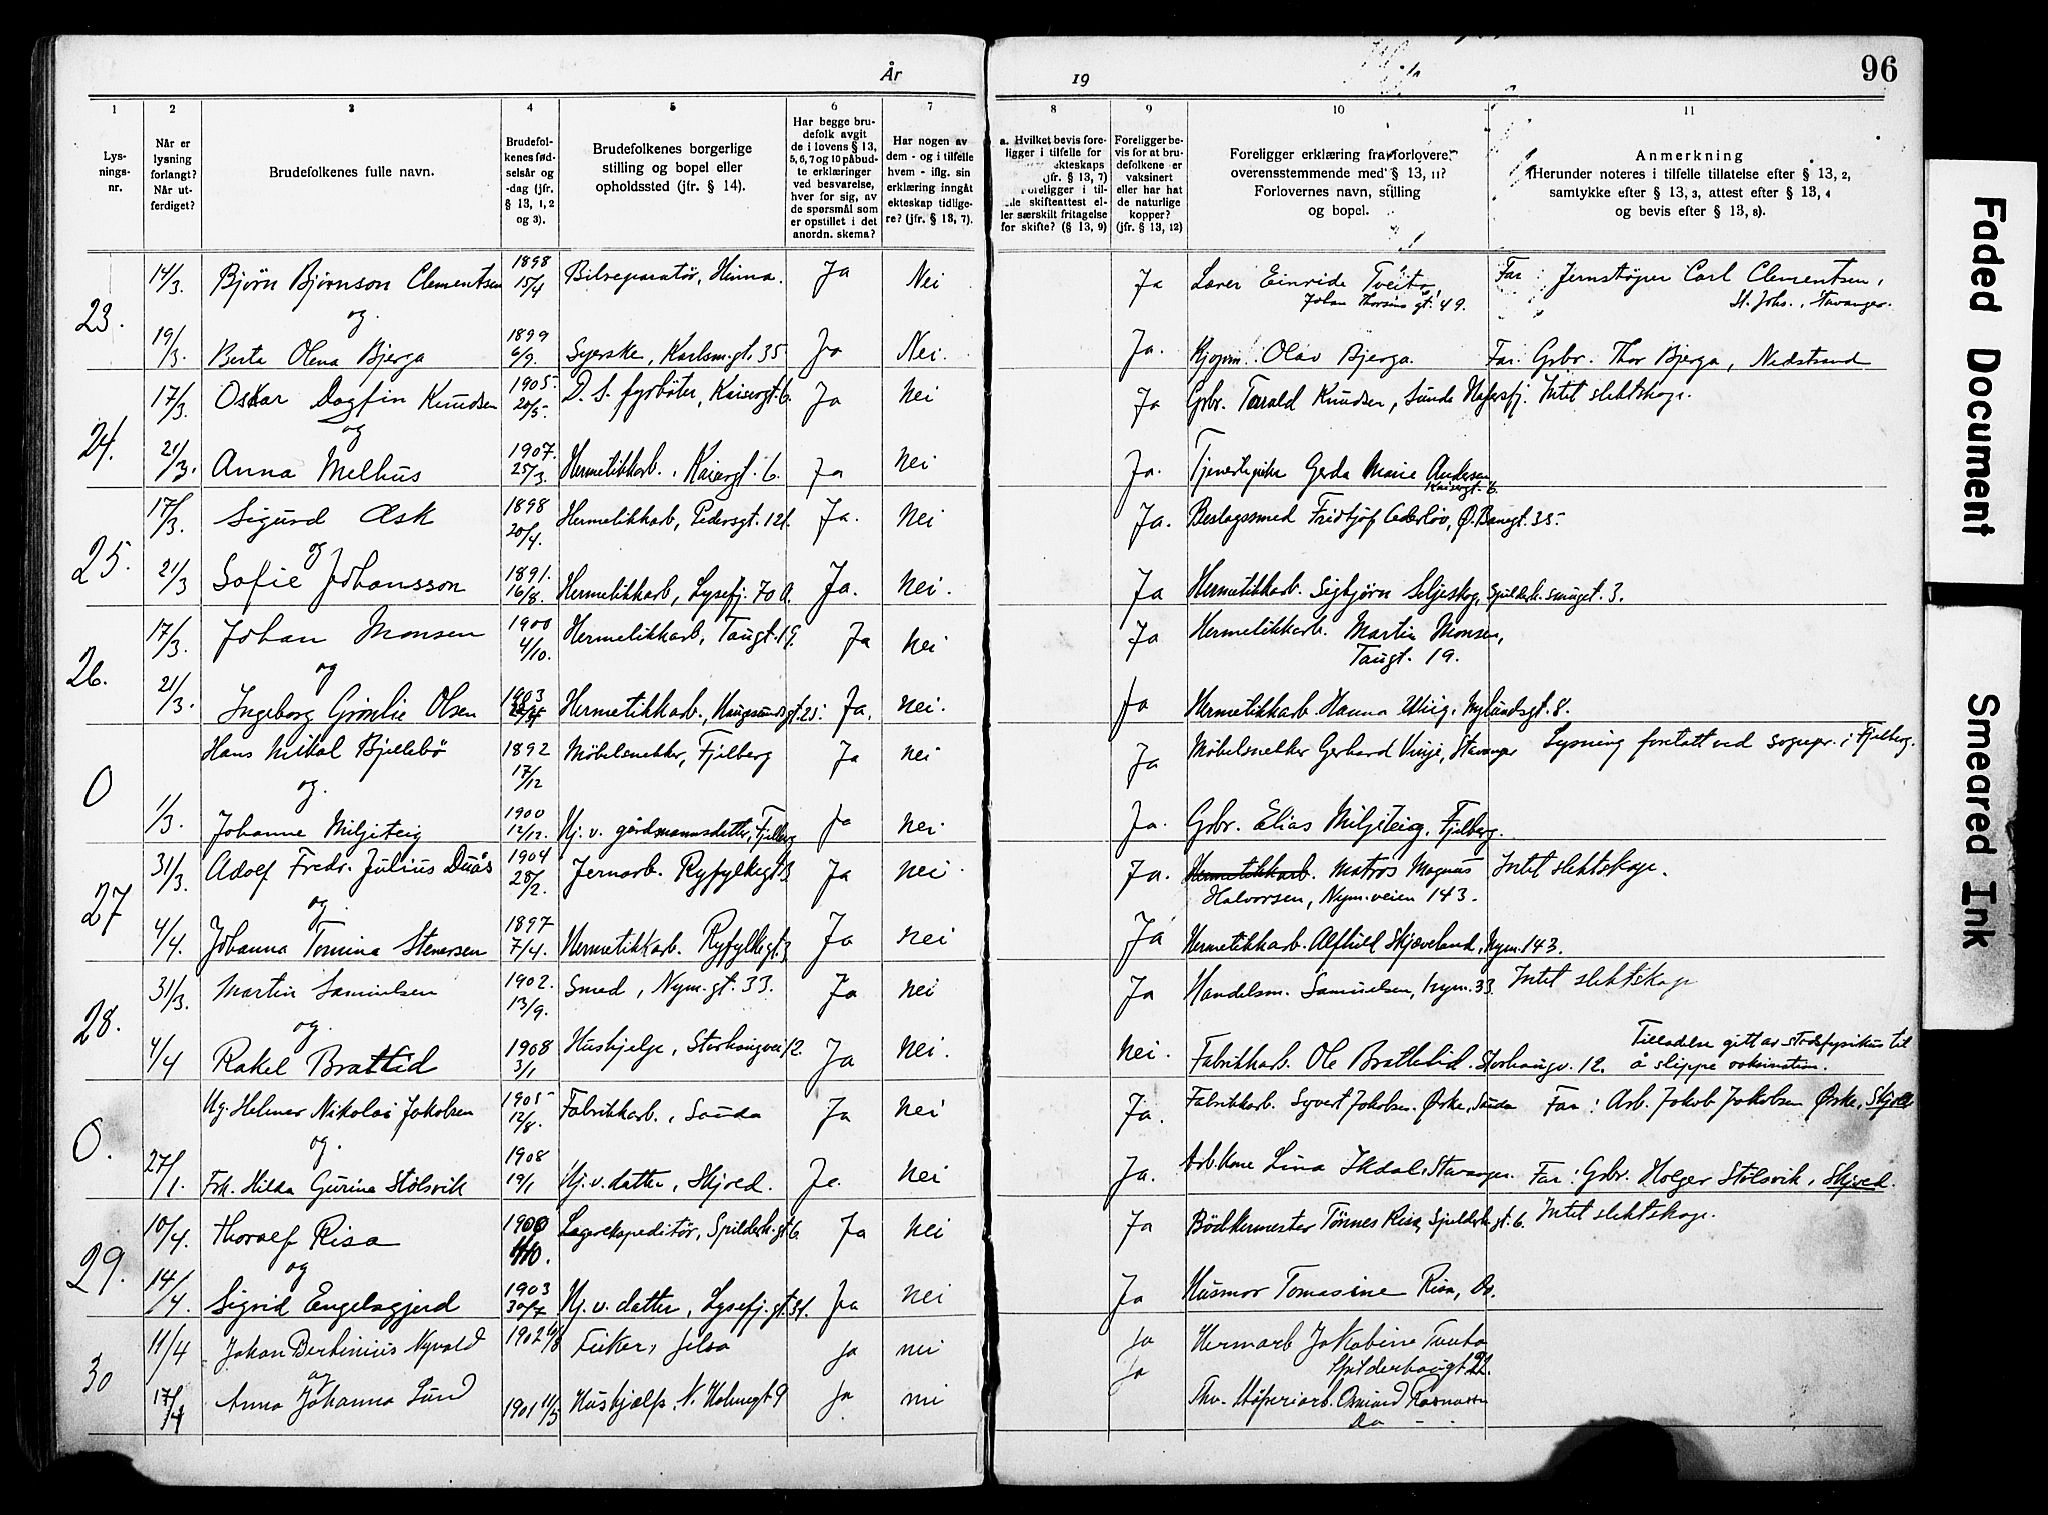 År
19
96
1 2 3 4 5 6 7 8 9 10 11
Lysningsnr.
Når er lysning forlangt? Når utferdiget?
Brudefolkenes fulle navn.
Brudefolkenes fødselsår og -dag (jfr. § 13, 1, 2 og 3).
Brudefolkenes borgerlige stilling og bopel eller opholdssted (jfr. § 14).
Har begge brudefolk avgit de i lovens § 13, 5, 6, 7 og 10 påbudte erklæringer ved besvarelse, hver for sig, av de spørsmål som er opstillet i det anordn. skema?
Har nogen av dem - og i tilfelle hvem - iflg. sin erklæring inngått ekteskap tidligere? (jfr. § 13, 7).
a. Hvilket bevis foreligger i tilfelle for ekteskaps (jfr. § 13, 7) foreligger i tilfelle skifteattest eller særskilt fritagelse for skifte? (§ 13, 9)
Foreligger bevis for at brudefolkene er vaksinert eller har hat de naturlige kopper? (jfr. § 13, 12)
Foreligger erklæring fra forlovere, overensstemmende med § 13, 11? Forlovernes navn, stilling og bopel.
Anmerkning
(Herunder noteres i tilfelle tillatelse efter § 13, 2, samtykke efter § 13, 3, attest efter § 13, 4 og bevis efter § 13, 8).
23. 14/3. Bjørn Bjørnson Clementsen 1898 15/4 Bilreparatør, Hinna. Ja Nei Ja Lærer Einride Tveito, Johan Thorsens gt. 49. Far: Jernstøper Carl Clementsen, St. Johs., Stavanger.
og
19/3. Berta Olena Bjerga 1899 6/9. Syerske, Karlsm.gt. 35 Ja Nei. Ja. Kjøpm. Olav Bjerga. Far: Grbr. Thor Bjerga, Nedstrand
24. 17/3. Oskar Dagfin Knudsen 1905. 20/5. D. S. fyrbøter, Kaisergt. 6. Ja Nei Ja Grbr. Tarald Knudsen, Sunde Hafrsfj. Intet slektskap.
og
21/3. Anna Melhus 1907. 25/3. Hermetikkarb., Kaisergt. 6. Ja Nei Ja. Gerda Marie Andersen Kaisergt. 6.
25. 17/3. Sigurd Æsk 1898 20/4. Hermetikkarb, Pedersgt. 121. Ja. Nei Ja. Beslagssmed Fridtjof Cederløv, Ø. Banegt. 35.
og
21/3 Sofie Johansson 1891. 16/8. Hermetikkarb, Lysefj. 70 a. Ja. Nei. Ja Hermetikkarb. Sigbjørn Seljeskog, Spilderh.smuget. 3.
26. 17/3. Johan Monsen 1900 4/10. Hermetikkarb, Taugt. 19. Ja Nei Ja Hermetikkarb. Martin Monsen, Taugt. 19.
og
21/3. Ingeborg Grønlie Olsen 1903 Hermetikkarb., Haugesundsgt. 25. Ja. Nei. Ja Hermetikkarb. Hanna Nylundsgt. 8.
O Hans Mikal Bjellebø 1892 17/12 Møbelsnekker, Fjelberg Ja Nei Ja Møbelsnekker Gerhard Vinje, Stavanger Lysning foretatt ved sognepr. i Fjelberg.
og.
1/3. Johanne Miljeteig 1900 12/12. Hj. v. gårdmannsdatter, Fjelberg Ja Nei Ja. Grbr. Elias Miljeteig, Fjelberg.
27 31/3. Adolf Fredr. Julius Duås 1904 28/2. Jernarb. Ryfylkegt. 3 Ja Nei Ja. Hermetikkarb. Matros Magnus Halvorsen, Nym.veien 143. Intet slektskap.
og
4/4. Johanna Tomina Stenersen 1897 7/4. Hermetikkarb. Ryfylkegt. 3 Ja Nei Ja Hermetikkarb. Alfhild Skjæveland, Nym. 143.
28. 31/3. Martin Samuelsen 1902. 13/9. Smed, Nym.gt. 33. Ja Nei Ja Handelsm. Samuelsen, Nym. 33. Intet slektskap
og.
4/4 Rakel Brattlid 1908 3/1 Hushjelp, Storhaugvei 12. Ja Nei. Nei. Fabrikkarb. Ole Brattlid. Storhaugv. 12. Tilladelse gitt av stadsfysikus til å slippe vaksination.
O. Ug. Helmer Nikolai Jakobsen 1905 12/8. Fabrikkarb., Sauda Ja Nei Ja. Fabrikkarb. Syvert Jakobsen. Ørke, Sauda Far: Arb. Jakob Jakobsen Ørke, Skjold
og.
27/1. Frk. Hilda Gurine Stølsvik 1908 19/1 Hj. v. datter, Skjold. Ja. Nei Ja. Arb.kone Lina Ikdal, Stavanger. Far: Grbr. Holger Stølsvik, Skjold.
29. 10/4. Thoralf Risa 1900 Lagerekspeditør, Spilderh.gt. 6 Ja Nei Ja Bødkermester Tønnes Risa, Spilderh.gt. 6. Intet slektskap.
og
14/4. Sigrid Engelsgjerd 1903 30/7 Hj. v. datter, Lysefj.gt. 31. Ja Nei Ja Husmor Tomasine Risa, Do.
30 11/4 Johan Bertinius Nyvold 1902 Fisker, Jelsa Ja nei Ja Hermarb Jakobine Tveito Spilderhaugt 22.
og
17/4 Anna Johanna Lund 1901 11/3 Hushjælp, N. Holmegt 9 Ja nei Ja Osmund Rasmussen Do - -
Faded Document
Smeared Ink